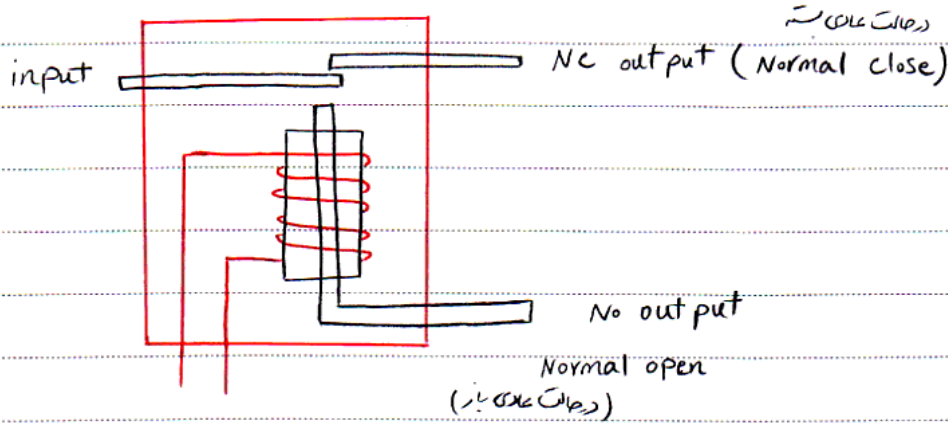 درحالت عادی بسته
input
NC output (Normal close)
No output
Normal open
(درحالت عادی باز)